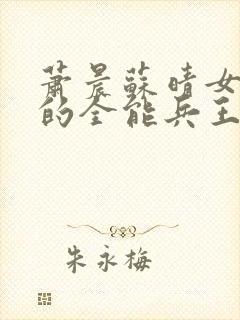 蕭晨蘇晴女
的全能兵王
朱永梅